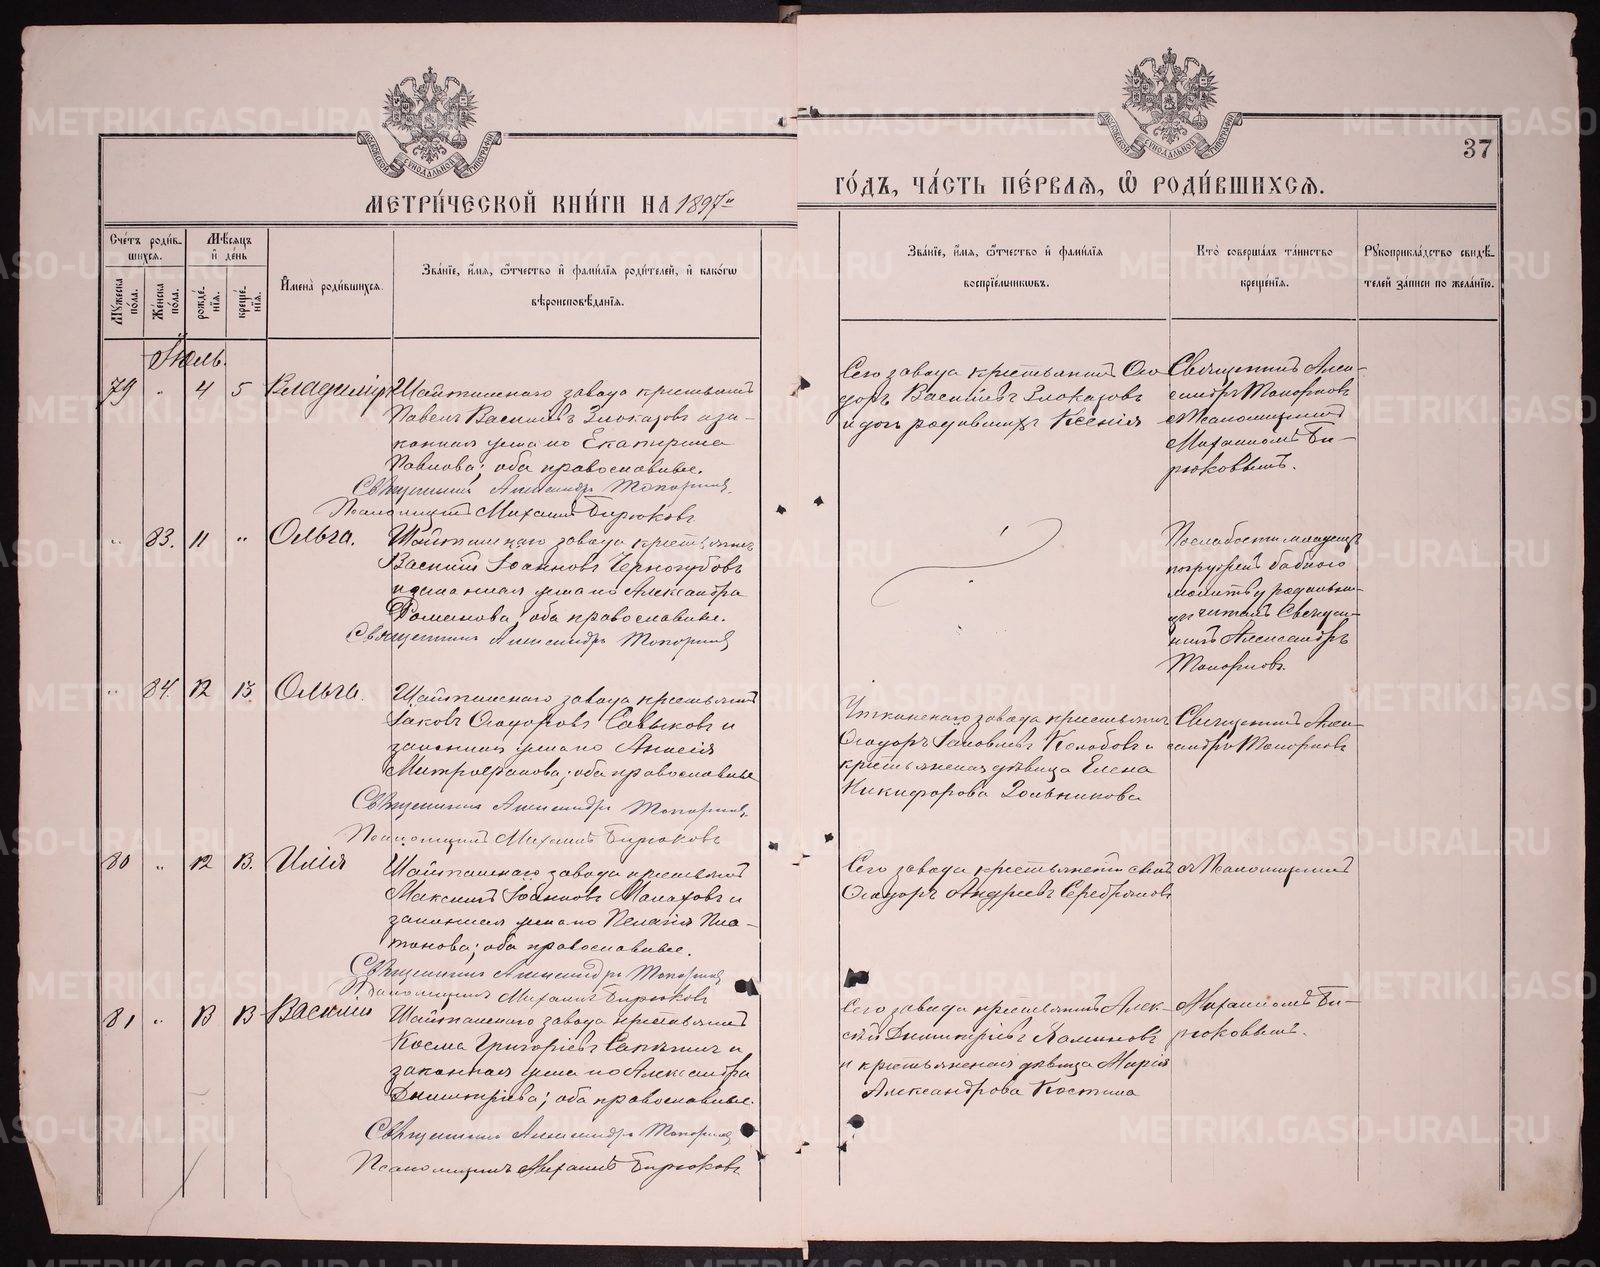 МЕТРИ́ЧЕСКОЙ КНИ́ГИ НА 1897й
ГО́ДЪ, ЧА́СТЬ ПЕ́РВАЯ, Ѡ҆ РОДИ́ВШИХСЯ.
37
Сче́тъ роди́в-
шихся.
Му́жеска пола.
Же́нска пола.
Мѣ́сяцъ и҆ де́нь
рожде́нїя.
креще́нїя.
И҆мена̀ роди́вшихся.
Зва́нїе, и҆́мя, ѻ҆́тчество и҆ фами́лїя роди́телей, и҆ како́гѡ
вѣроисповѣ́данїя.
Зва́нїе, и҆́мя, ѻ҆́тчество и҆ фами́лїя
воспрїе́мникѡвъ.
Кто̀ соверша́лъ та́инство
креще́нїя.
Рꙋкоприкла́дство свидѣ́-
телей за́писи по жела́нїю.
Іюль.
79 " 4 5 Владиміръ
Шайтанскаго завода крестьянинъ
Павелъ Васильевъ Злоказовъ и за-
конная жена его Екатерина
Павлова; оба православные.
Священникъ Александръ Топорковъ
Псаломщикъ Михаилъ Бирюковъ
Сего завода крестьянинъ Ѳео-
доръ Васильевъ Злоказовъ
и дочь родившихъ Ксенія
Священникъ Алек-
сандръ Топорковъ
съ Псаломщикомъ
Михаиломъ Би-
рюковымъ.
" 83. 11 " Ольга.
Шайтанскаго завода крестьянинъ
Василій Іоанновъ Черногубовъ
и законная жена его Александра
Романова; оба православные.
Священникъ Александръ Топорковъ
По слабости младенецъ
погруженъ бабкою
молитву родильни-
цѣ читалъ Священ-
никъ Александръ
Топорковъ.
" 84. 12 13. Ольга.
Шайтанскаго завода крестьянинъ
Іаковъ Ѳеодоровъ Савыковъ и
законная жена его Анисія
Митрофанова; оба православные
Священникъ Александръ Топорковъ
Псаломщикъ Михаилъ Бирюковъ
Уткинскаго завода крестьянинъ
Ѳеодоръ Іаковлевъ Колобовъ и
крестьянская дѣвица Елена
Никифорова Зольникова
Священникъ Алек-
сандръ Топорковъ
80 " 12 13. Илія
Шайтанскаго завода крестьянинъ
Максимъ Іоанновъ Малаховъ и
законная жена его Пелагія Пла-
тонова; оба православные.
Священникъ Александръ Топорковъ
Псаломщикъ Михаилъ Бирюковъ
Сего завода крестьянскій сынъ
Ѳеодоръ Андреевъ Серебряковъ
съ Псаломщикомъ
81 " 13 13 Василій
Шайтанскаго завода крестьянинъ
Косма Григорьевъ Сапегинъ и
законная жена его Александра
Димитріева; оба православные.
Священникъ Александръ Топорковъ
Псаломщикъ Михаилъ Бирюковъ
Сего завода крестьянинъ Алек-
сѣй Димитріевъ Каминовъ
и крестьянская дѣвица Марія
Александрова Костина
Михаиломъ Би-
рюковымъ.
METRIKI.GASO-URAL.RU